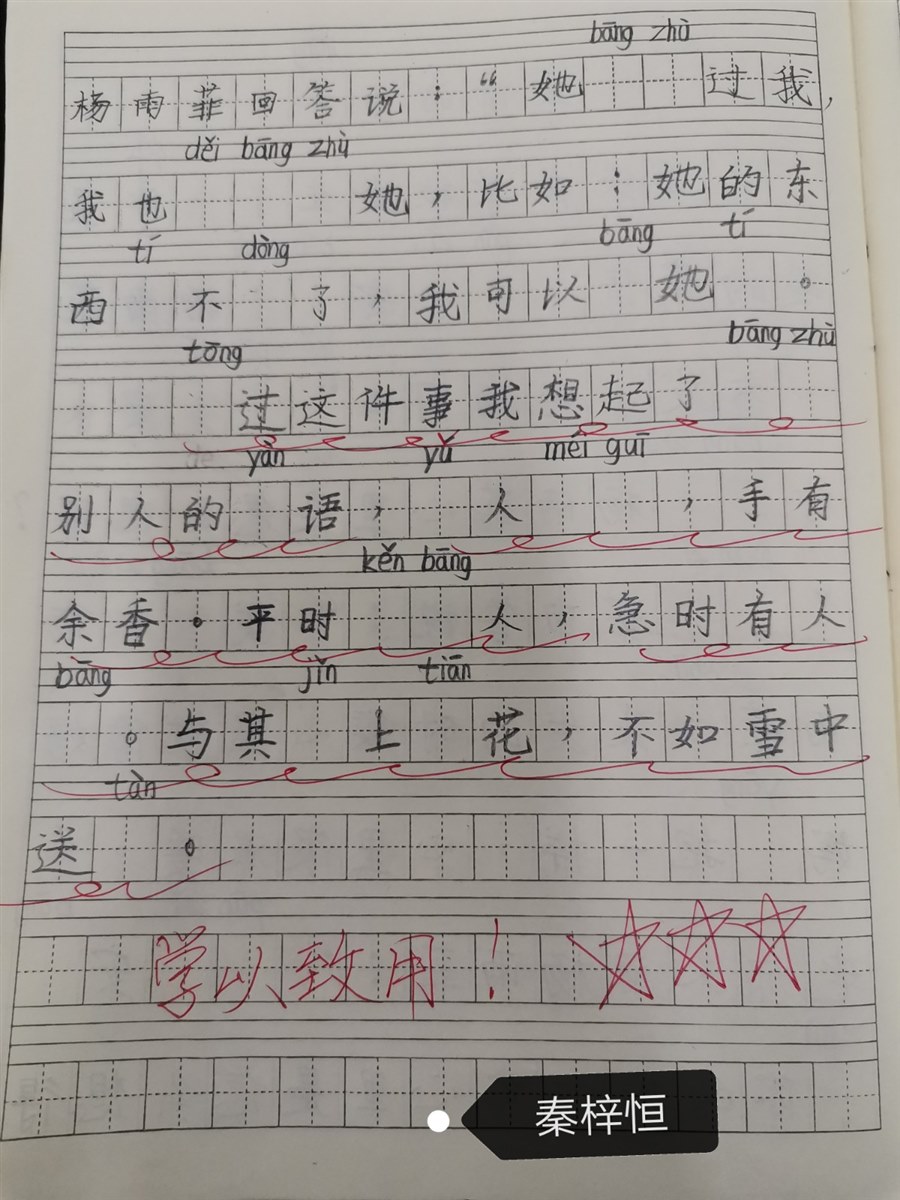 bāng zhù
杨雨菲回答说:“她 过我,
děi bāng zhù
我也 她,比如:她的东
tí dòng bāng tí
西 不 了,我可以 她 。
tōng bāng zhù
过这件事我想起了
yàn yǔ méi guī
别人的 语, 人 ,手有
kěn bāng
余香。平时 人,急时有人
bāng jǐn tiān
。与其 上 花,不如雪中
tàn
送 。
学以致用!
秦梓恒